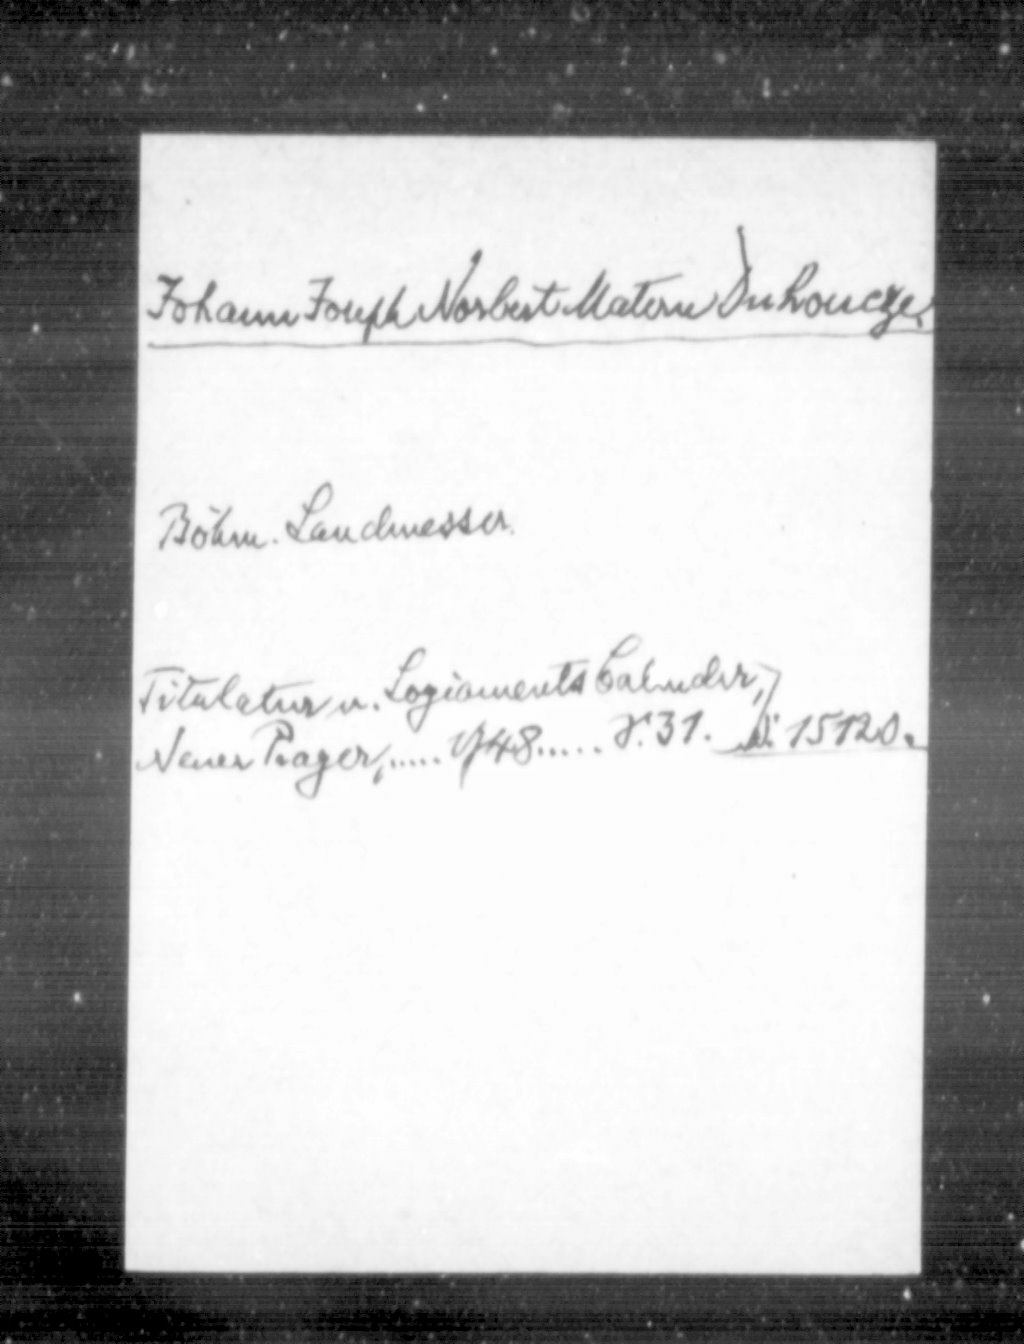 Johann Joseph Norbert Matern Duhouczge.
Böhm. Landmesser.
Titulatur u. Logiaments Calender,
Neuer Prager, ..... 1748 ..... S. 31. 15120.